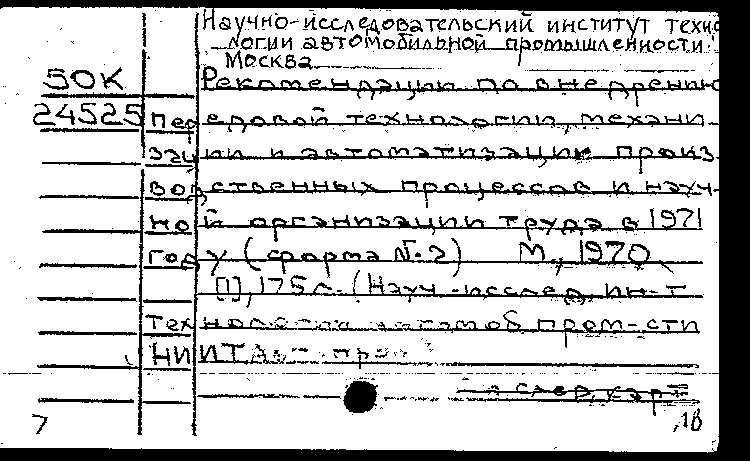 Научно-исследовательский институт техно
логии автомобильной промышленности.
Москва
50К Рекомендации по внедрению
24525 передовой технологии, механи
зации и автоматизации произ
водственных процессов и науч-
ной организации труда в 1971
году (форма №2) М., 1970
[1], 175 л. (Науч.-исслед. ин-т
технологии автомоб. пром-сти
НИИТавтопром
см след. карт
7 18